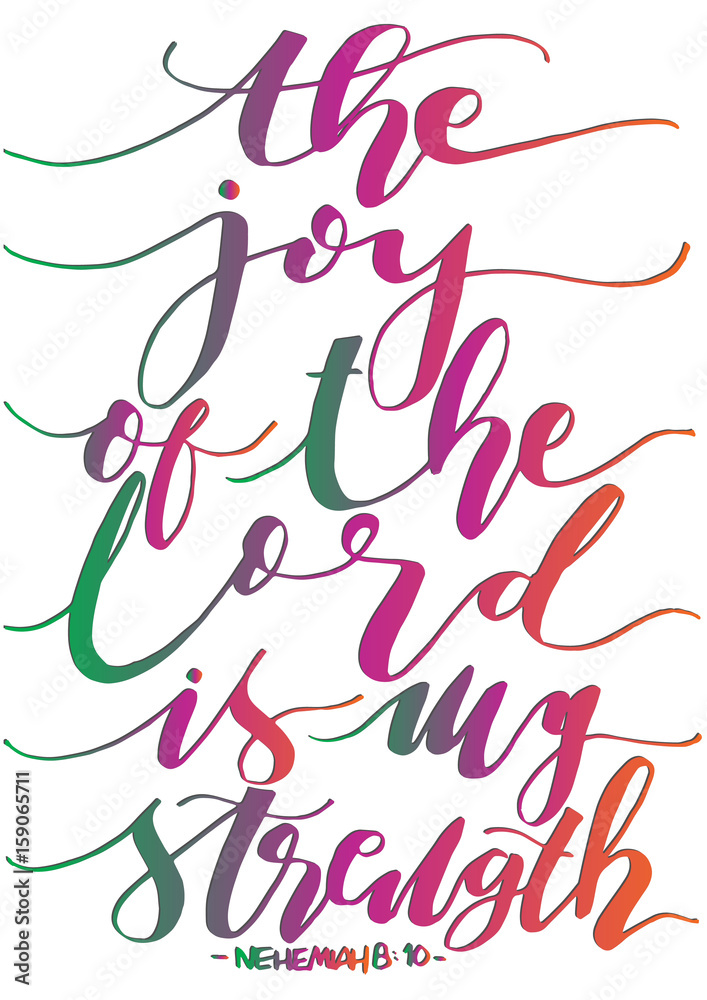 the
joy
of the
Lord
is my
strength
- NEHEMIAH 8:10 -
Adobe Stock | #159065711